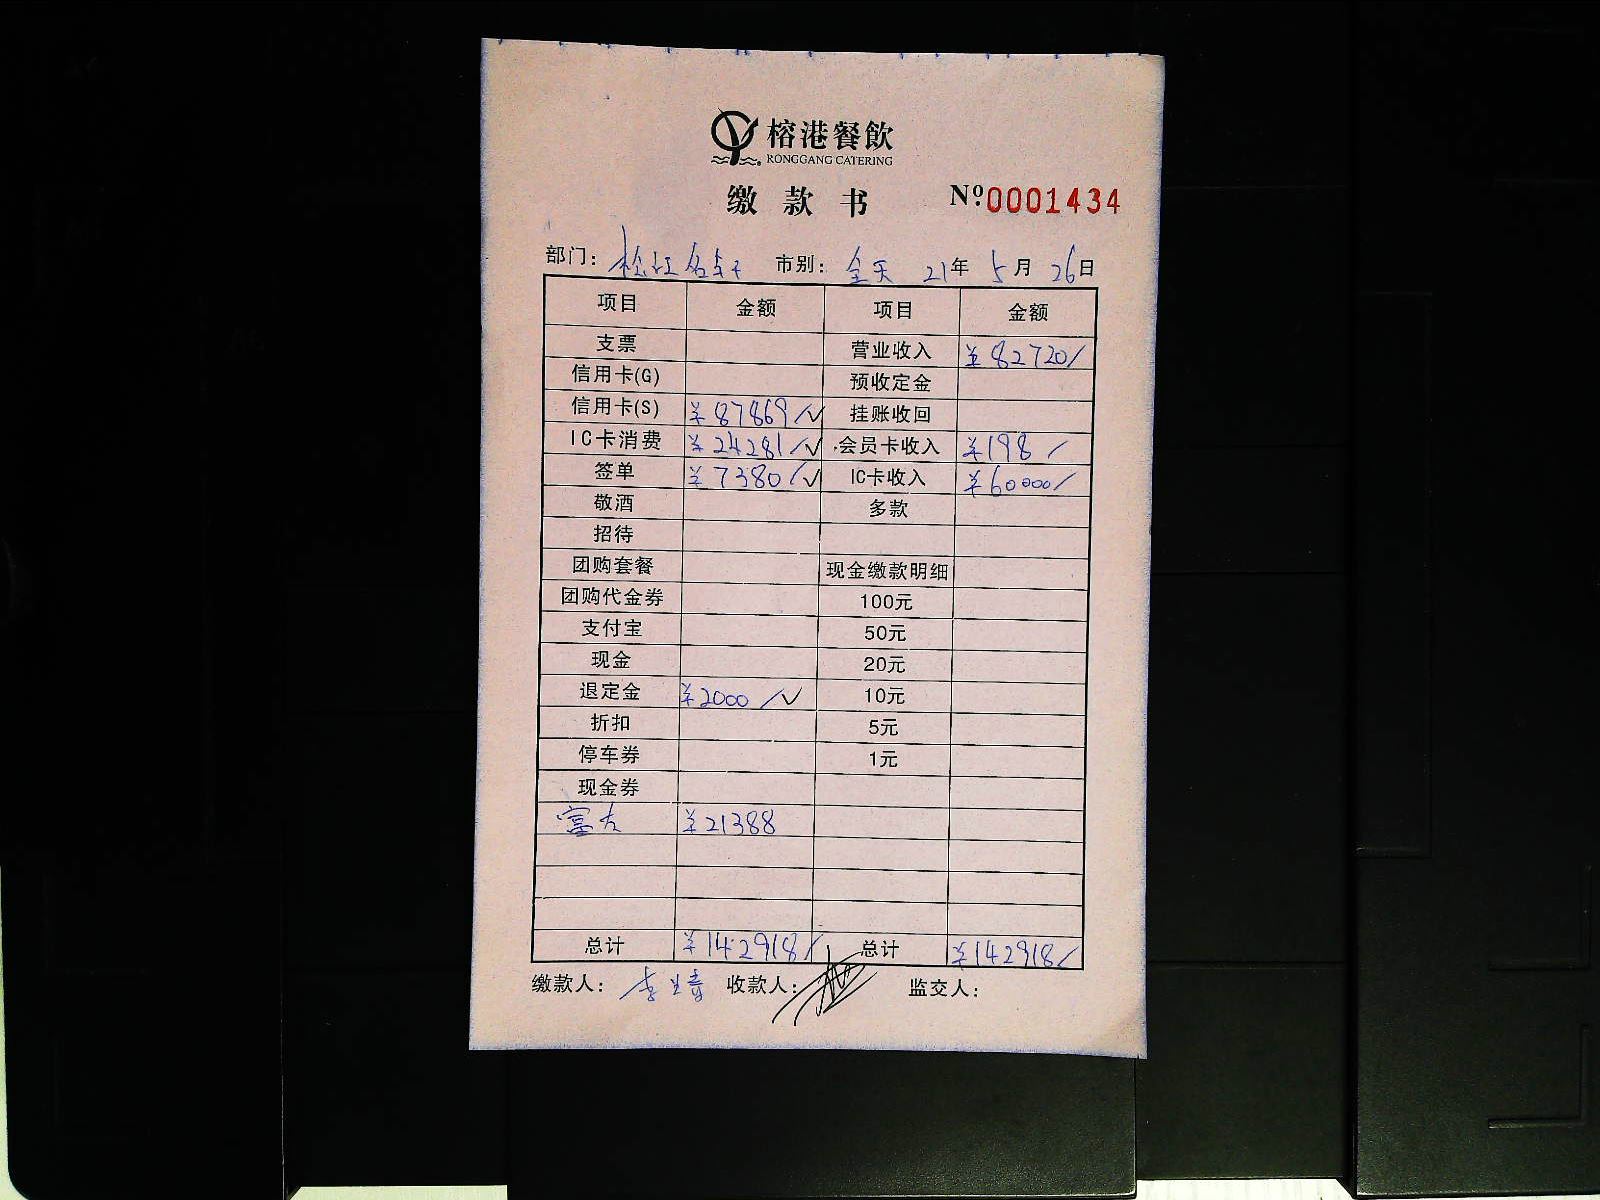 榕港餐飲
RONGGANG CATERING
缴款书 Nº 0001434
部门： 松江名轩 市别： 全天 21年 5月 26日
项目 金额 项目 金额
支票 营业收入 ¥82720/
信用卡(G) 预收定金
信用卡(S) ¥87869/√ 挂账收回
IC卡消费 ¥24281/√ 会员卡收入 ¥198/
签单 ¥7380/√ IC卡收入 ¥60000/
敬酒 多款
招待
团购套餐 现金缴款明细
团购代金券 100元
支付宝 50元
现金 20元
退定金 ¥2000/√ 10元
折扣 5元
停车券 1元
现金券
富友 ¥21388
总计 ¥142918/ 总计 ¥142918/
缴款人： 收款人： 监交人：